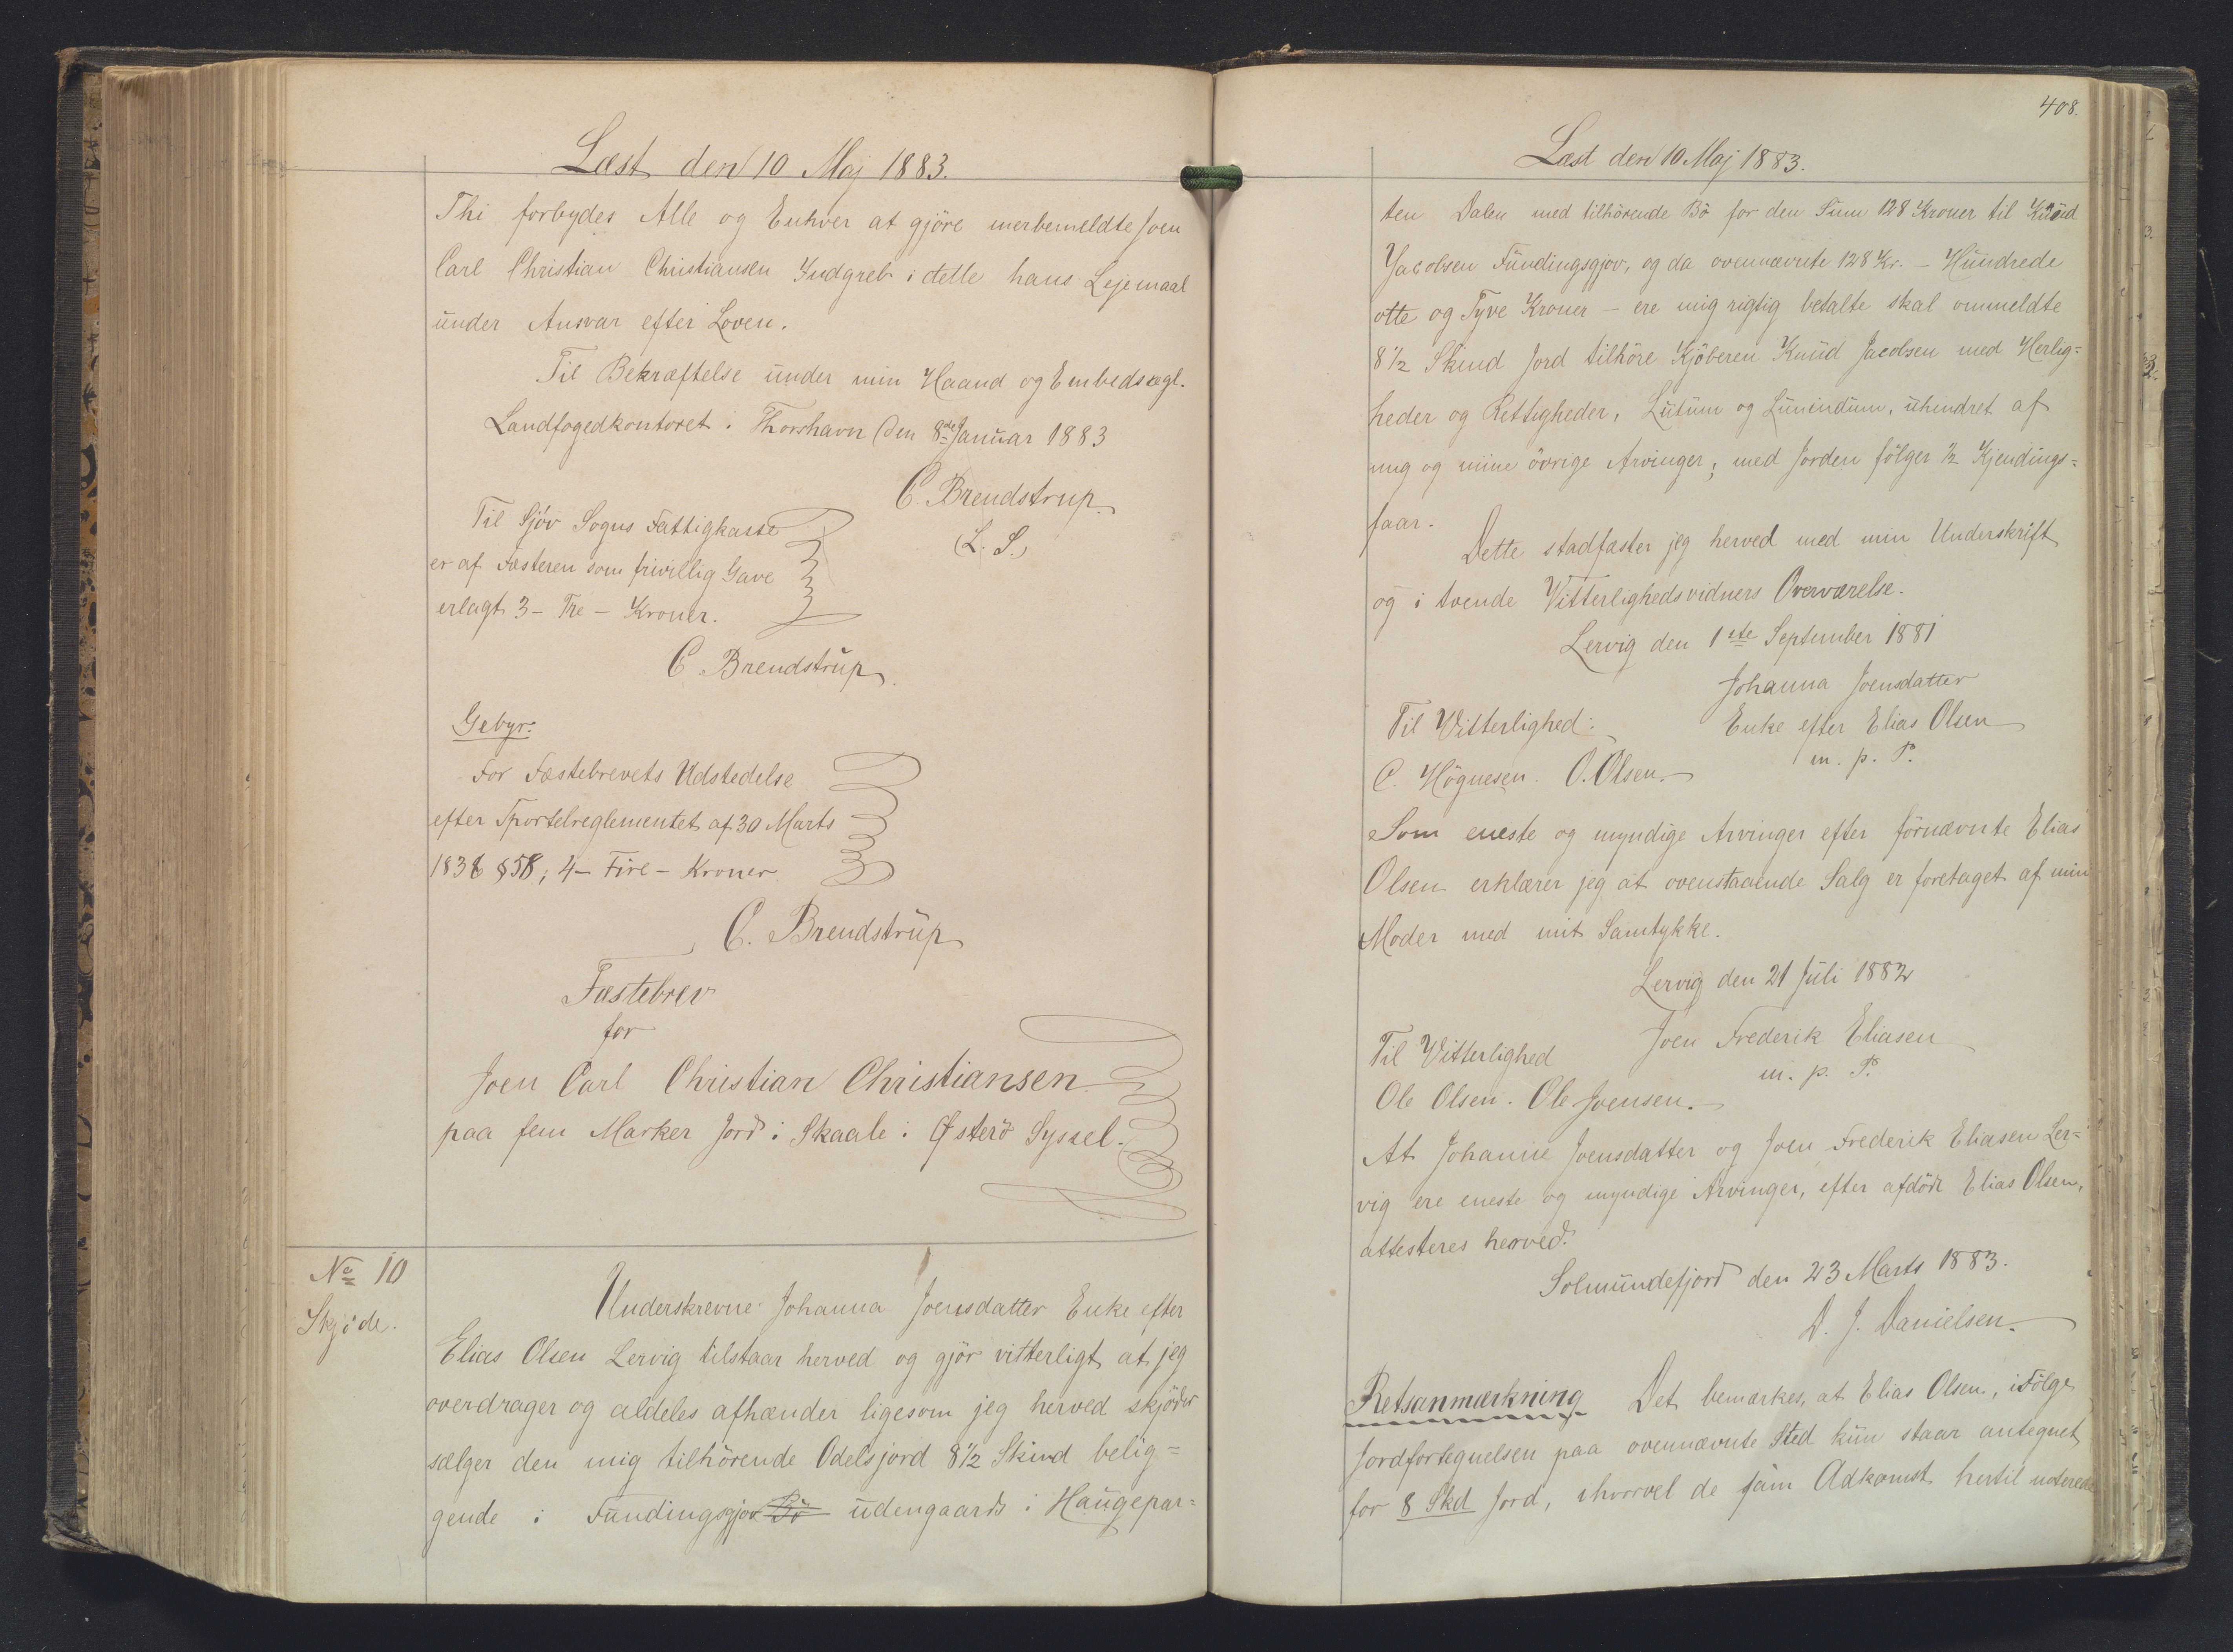 Læst den 10 Maj 1883.
Thi forbydes Alle og Enhver at gjöre merbemeldte Joen
Carl Christian Christiansen Indgreb i dette hans Lejemaal
under Ansvar efter Loven.
Til Bekræftelse under min Haand og Embedssegl.
Landfogedkontoret i Thorshavn den 8de Januar 1883
C. Brendstrup.
(L. S.)
Til Sjóv Sogns Fattigkasse
er af Fæsteren som frivillig Gave
erlagt 3 - Tre - Kroner.
C. Brendstrup.
Gebyr.
For Fæstebrevets Udstedelse
efter Sportelreglementet af 30 Marts
1838 § 58, 4 - Fire - Kroner
C. Brendstrup
Fæstebrev
for
Joen Carl Christian Christiansen
paa fem Marker Jord i Skaale i Østerö Syssel.
No 10
Skjöde.
Underskrevne Johanna Joensdatter Enke efter
Elias Olsen Lervig tilstaar herved og gjör vitterligt at jeg
overdrager og aldeles afhænder ligesom jeg herved skjöder
sælger den mig tilhörende Odelsjord 8 1/2 Skind belig=
gende i Fundingsgjov Bö udengaards i Haugepar=
408.
Læst den 10 Maj 1883.
ten Dalen med tilhörende Bö for den Sum 128 Kroner til Knud
Jacobsen Fundingsgjov, og da ovennævnte 128 Kr. - Hundrede
otte og Tyve Kroner - ere mig rigtig betalte skal ommeldte
8 1/2 Skind Jord tilhöre Kjöberen Knud Jacobsen med Herlig=
heder og Rettigheder, Lutum og Lunindum, uhindret af
mig og mine övrige Arvinger; med Jorden fölger 1/2 Kjendings=
faar.
Dette stadfæster jeg herved med min Underskrift
og i tvende Vitterlighedsvidners Overværelse.
Lervig den 1ste September 1881
Johanna Joensdatter
Til Vitterlighed: Enke efter Elias Olsen
m. p. P.
C. Högnesen. O. Olsen.
Som eneste og myndige Arvinger efter förnævnte Elias
Olsen erklærer jeg at ovenstaaende Salg er foretaget af min
Moder med mit Samtykke.
Lervig den 21 Juli 1882
Til Vitterlighed Joen Frederik Eliasen
m. p. P.
Ole Olsen. Ole Joensen.
At Johanne Joensdatter og Joen Frederik Eliasen Ler=
vig ere eneste og myndige Arvinger, efter afdöde Elias Olsen,
attesteres herved.
Solmundefjord den 23 Marts 1883.
D. J. Danielsen.
Retsanmærkning Det bemærkes, at Elias Olsen, ifölge
Jordfortegnelsen paa ovennævnte Sted kun staar antegnet
for 8 Skd Jord, ihvorvel de fam Adkomst hertil